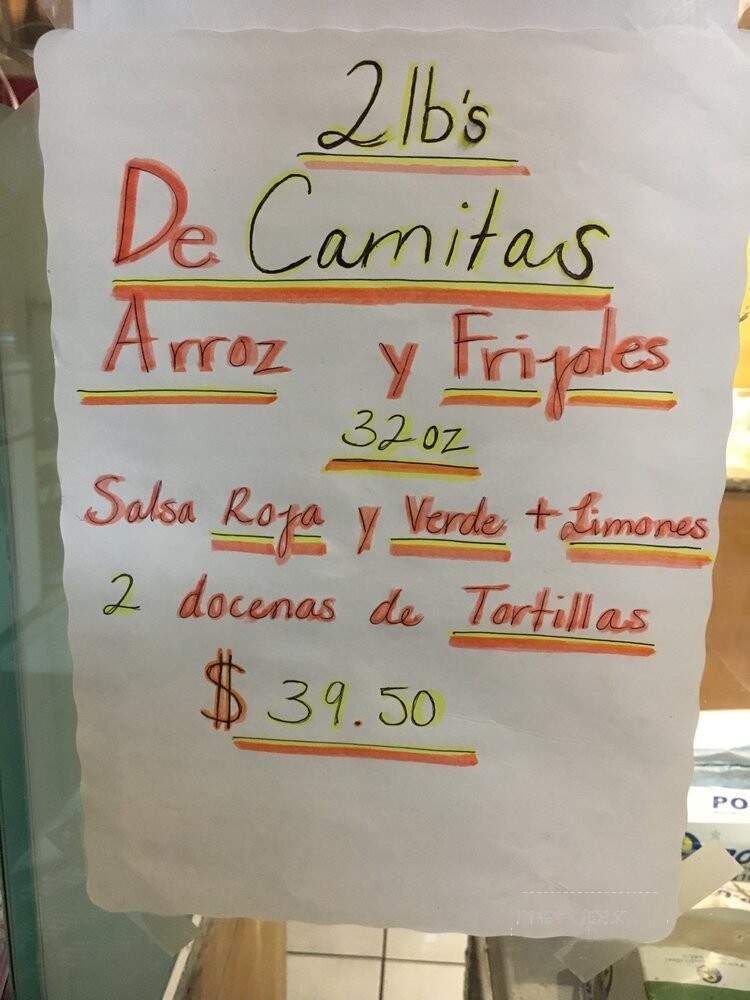 2 lb's
De Carnitas
Arroz y Frijoles
32 oz
Salsa Roja y Verde + Limones
2 docenas de Tortillas
$ 39.50
PO